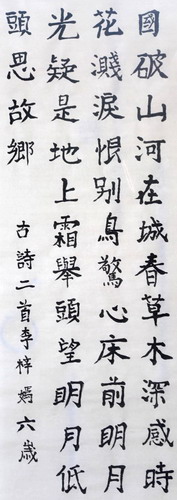 國破山河在城春草木深感時
花濺淚恨别鳥驚心床前明月
光疑是地上霜舉頭望明月低
頭思故鄉
古詩二首李梓嫣六歲